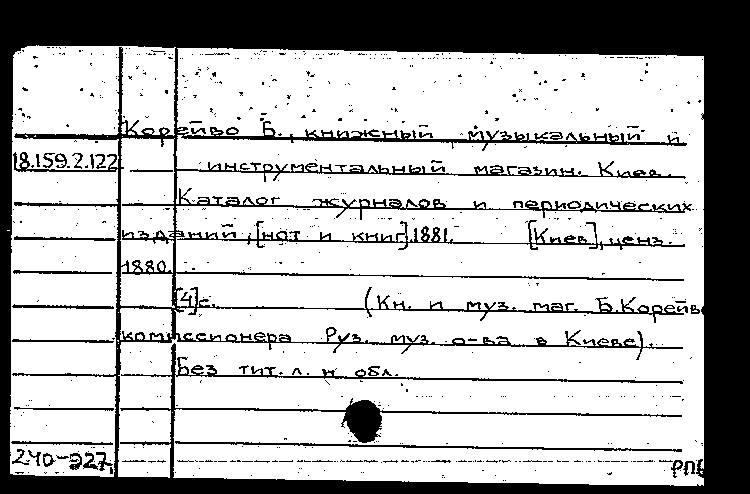 Корейво Б., книжный музыкальный и
18.159.2.122 инструментальный магазин. Киев.
Каталог журналов и периодических
изданий, [нот и книг]. 1881. [Киев], ценз.
1880.
[4]с. (Кн. и муз. маг. Б.Корейво
комиссионера Руз. муз. о-ва в Киеве).
Без тит. л. и обл.
240-927,